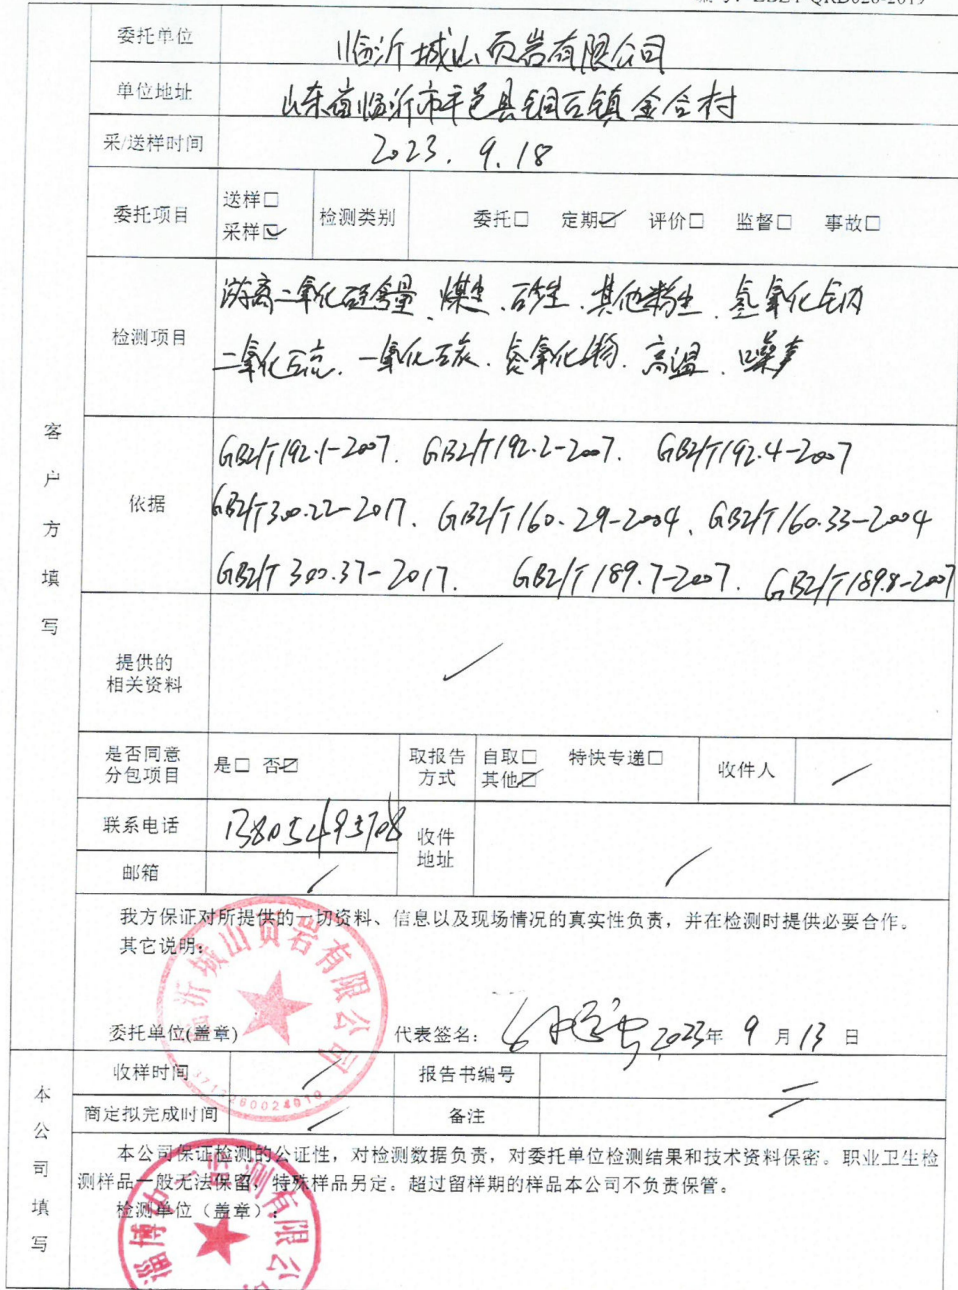 委托单位 临沂城山页岩有限公司
单位地址 山东省临沂市平邑县铜石镇金合村
采/送样时间 2023.9.18
委托项目 送样□ 采样☑ 检测类别 委托□ 定期☑ 评价□ 监督□ 事故□
检测项目
游离二氧化硅含量、煤尘、矽尘、其他粉尘、氢氧化钠
二氧化硫、一氧化碳、氮氧化物、高温、噪声
客户方填写
依据
GBZ/T192.1-2007、GBZ/T192.2-2007、GBZ/T192.4-2007
GBZ/T300.22-2017、GBZ/T160.29-2004、GBZ/T160.33-2004
GBZ/T300.37-2017、GBZ/T189.7-2007、GBZ/T189.8-2007
提供的
相关资料
是否同意
分包项目
是□ 否☑
取报告
方式
自取□ 特快专递□
其他☑
收件人
联系电话
收件
地址
邮箱
我方保证对所提供的一切资料、信息以及现场情况的真实性负责，并在检测时提供必要合作。
其它说明：
沂城山页岩有限公司
委托单位(盖章) 代表签名： 2023年9月13日
本公司填写
收样时间 报告书编号
商定拟完成时间 备注
本公司保证检测的公证性，对检测数据负责，对委托单位检测结果和技术资料保密。职业卫生检
测样品一般无法保留，特殊样品另定。超过留样期的样品本公司不负责保管。
检测单位（盖章）：
淄博 检测有限公司